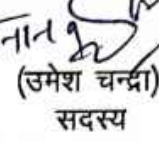 (उमेश चन्द्रा)
सदस्य